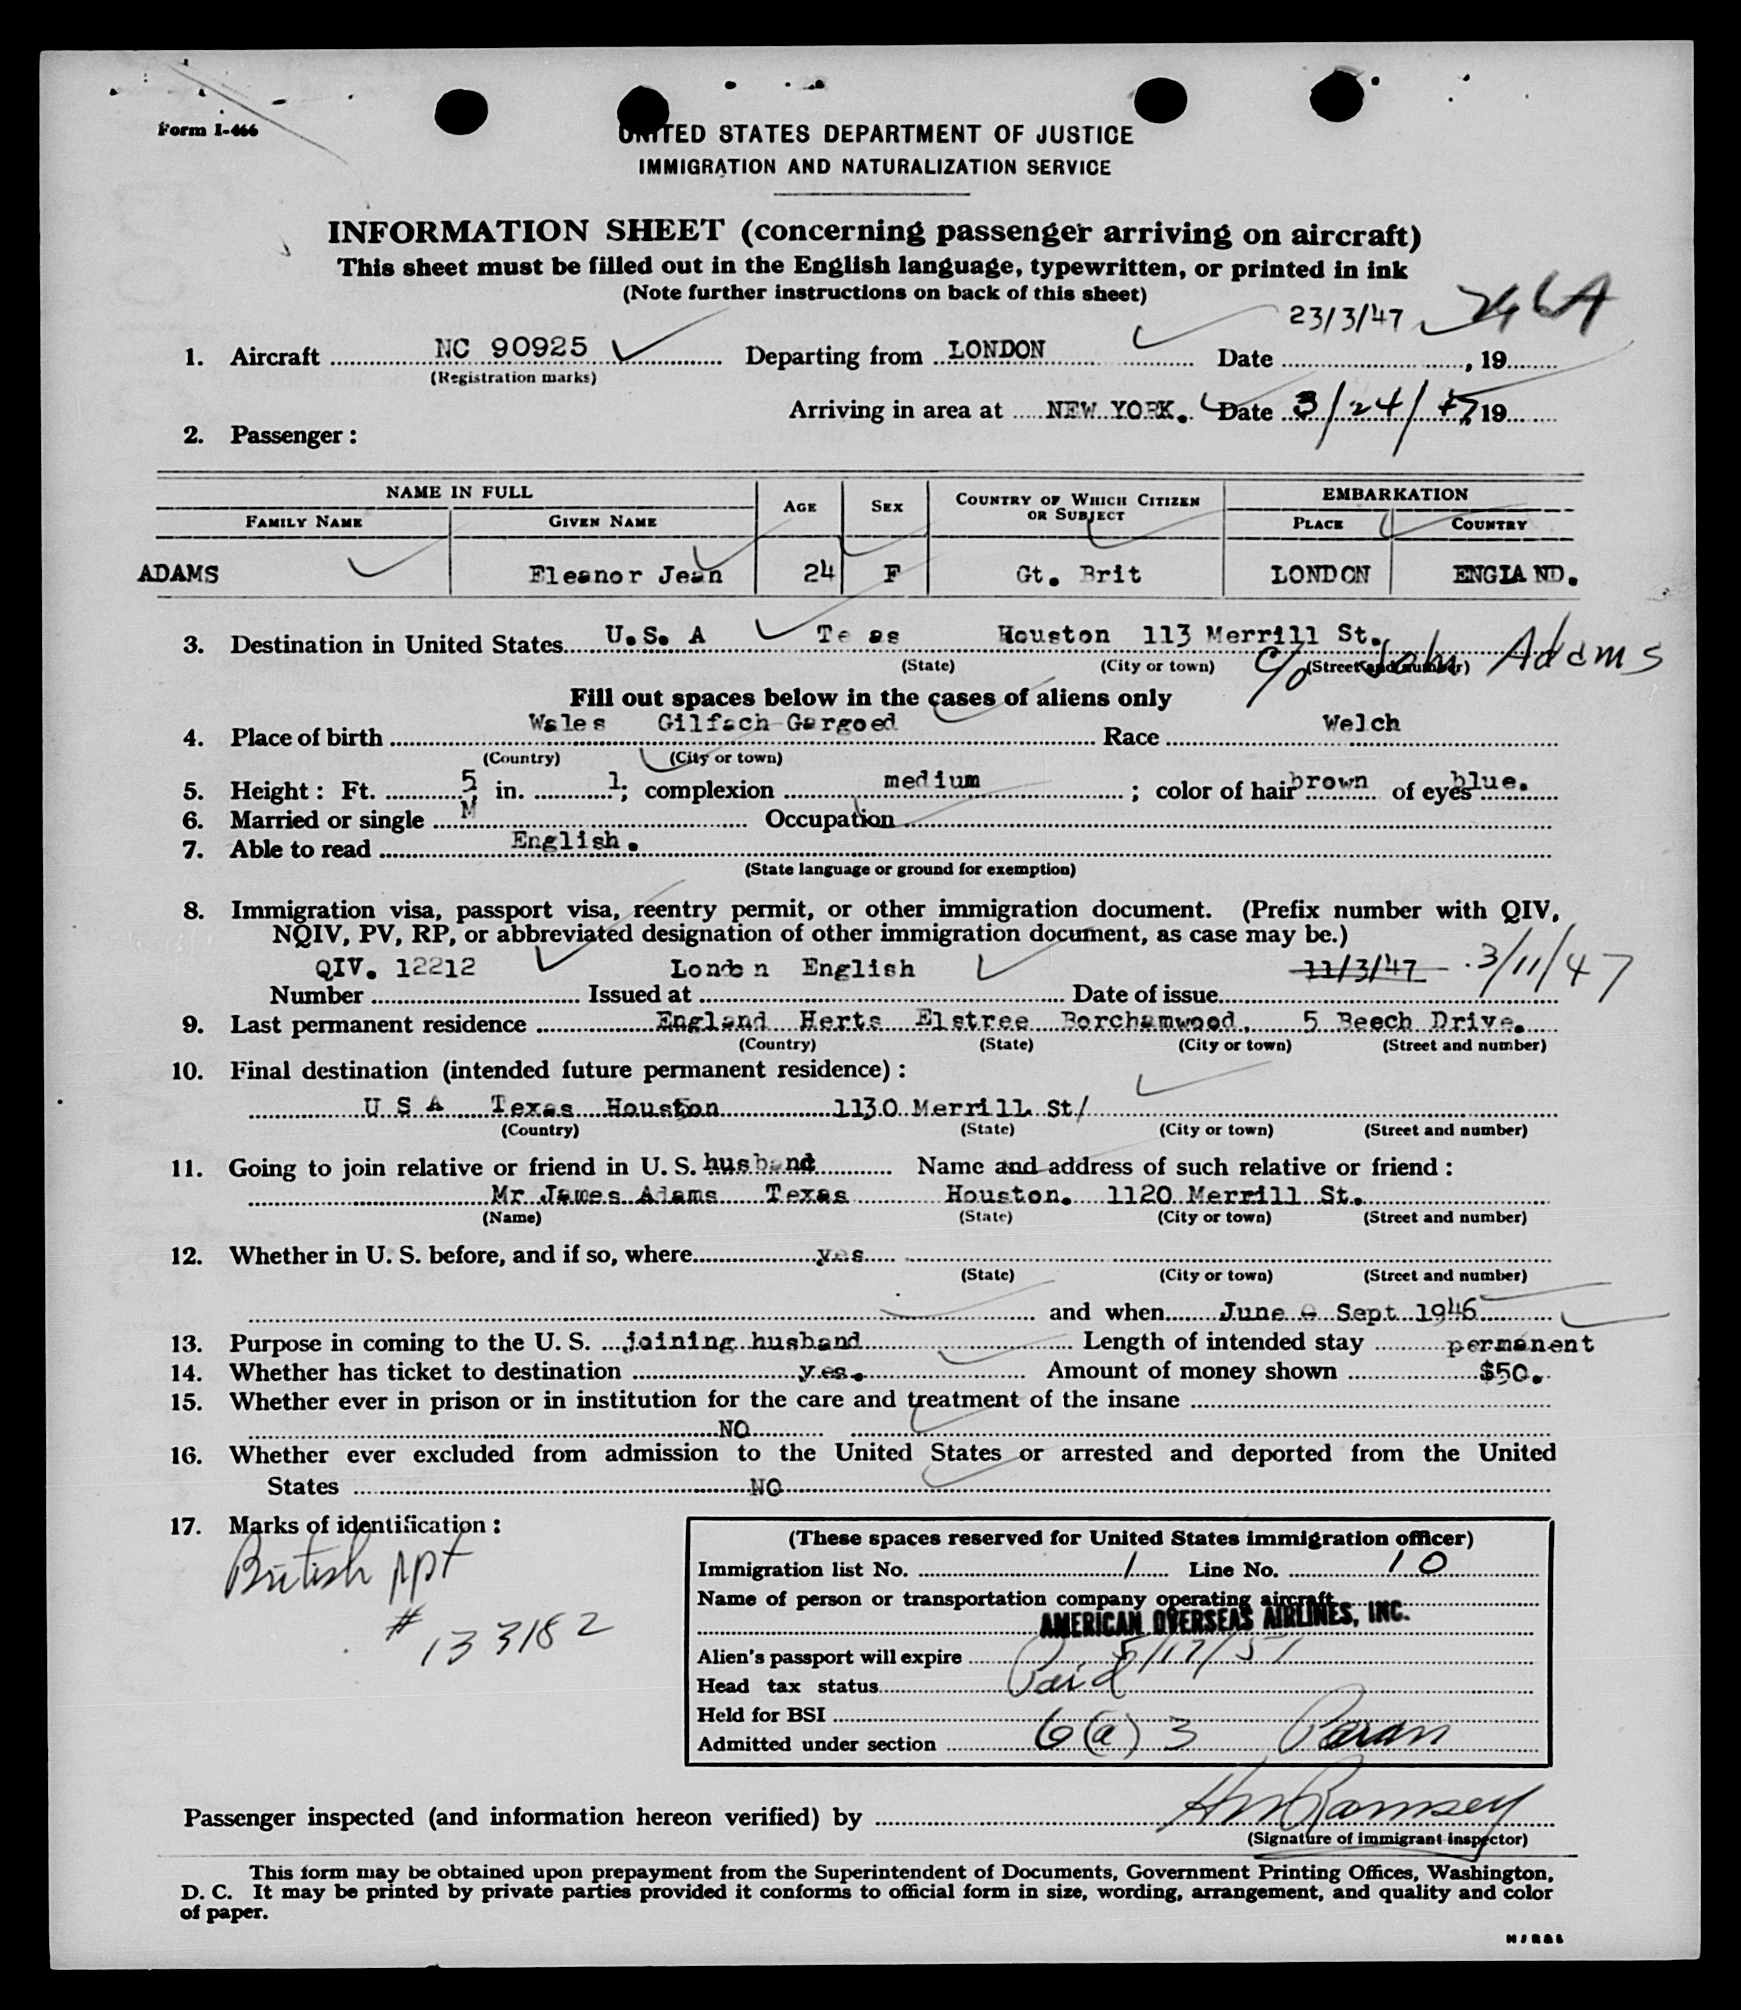 Form I-466
UNITED STATES DEPARTMENT OF JUSTICE
IMMIGRATION AND NATURALIZATION SERVICE
INFORMATION SHEET (concerning passenger arriving on aircraft)
This sheet must be filled out in the English language, typewritten, or printed in ink
(Note further instructions on back of this sheet)
23/3/47
1. Aircraft NC 90925 Departing from LONDON Date , 19
(Registration marks)
Arriving in area at NEW YORK. Date 3/24/47, 19
2. Passenger:
NAME IN FULL AGE SEX COUNTRY OF WHICH CITIZEN OR SUBJECT EMBARKATION
FAMILY NAME GIVEN NAME PLACE COUNTRY
ADAMS Eleanor Jean 24 F Gt. Brit LONDON ENGLAND.
3. Destination in United States U.S. A Te as Houston 113 Merrill St.
(State) (City or town) (Street and number) c/o John Adams
Fill out spaces below in the cases of aliens only
4. Place of birth Wales Gilfach Gargoed Race Welch
(Country) (City or town)
5. Height: Ft. 5 in. 1; complexion medium ; color of hair brown of eyes blue.
6. Married or single M Occupation
7. Able to read English.
(State language or ground for exemption)
8. Immigration visa, passport visa, reentry permit, or other immigration document. (Prefix number with QIV,
NQIV, PV, RP, or abbreviated designation of other immigration document, as case may be.)
QIV. 12212 London English 11/3/47 3/11/47
Number Issued at Date of issue
9. Last permanent residence England Herts Elstree Borchamwood, 5 Beech Drive.
(Country) (State) (City or town) (Street and number)
10. Final destination (intended future permanent residence):
U S A Texas Houston 1130 Merrill St/
(Country) (State) (City or town) (Street and number)
11. Going to join relative or friend in U. S. husband Name and address of such relative or friend:
Mr James Adams Texas Houston. 1120 Merrill St.
(Name) (State) (City or town) (Street and number)
12. Whether in U. S. before, and if so, where yes
(State) (City or town) (Street and number)
and when June Sept 1946
13. Purpose in coming to the U. S. joining husband Length of intended stay permanent
14. Whether has ticket to destination yes. Amount of money shown $50.
15. Whether ever in prison or in institution for the care and treatment of the insane
NO
16. Whether ever excluded from admission to the United States or arrested and deported from the United
States NO
17. Marks of identification:
British ppt
# 133182
(These spaces reserved for United States immigration officer)
Immigration list No. 1 Line No. 10
Name of person or transportation company operating aircraft
AMERICAN OVERSEAS AIRLINES, INC.
Alien's passport will expire 5/17/51
Head tax status Paid
Held for BSI
Admitted under section 6(a) 3
Passenger inspected (and information hereon verified) by HM Ramsey
(Signature of immigrant inspector)
This form may be obtained upon prepayment from the Superintendent of Documents, Government Printing Offices, Washington,
D. C. It may be printed by private parties provided it conforms to official form in size, wording, arrangement, and quality and color
of paper.